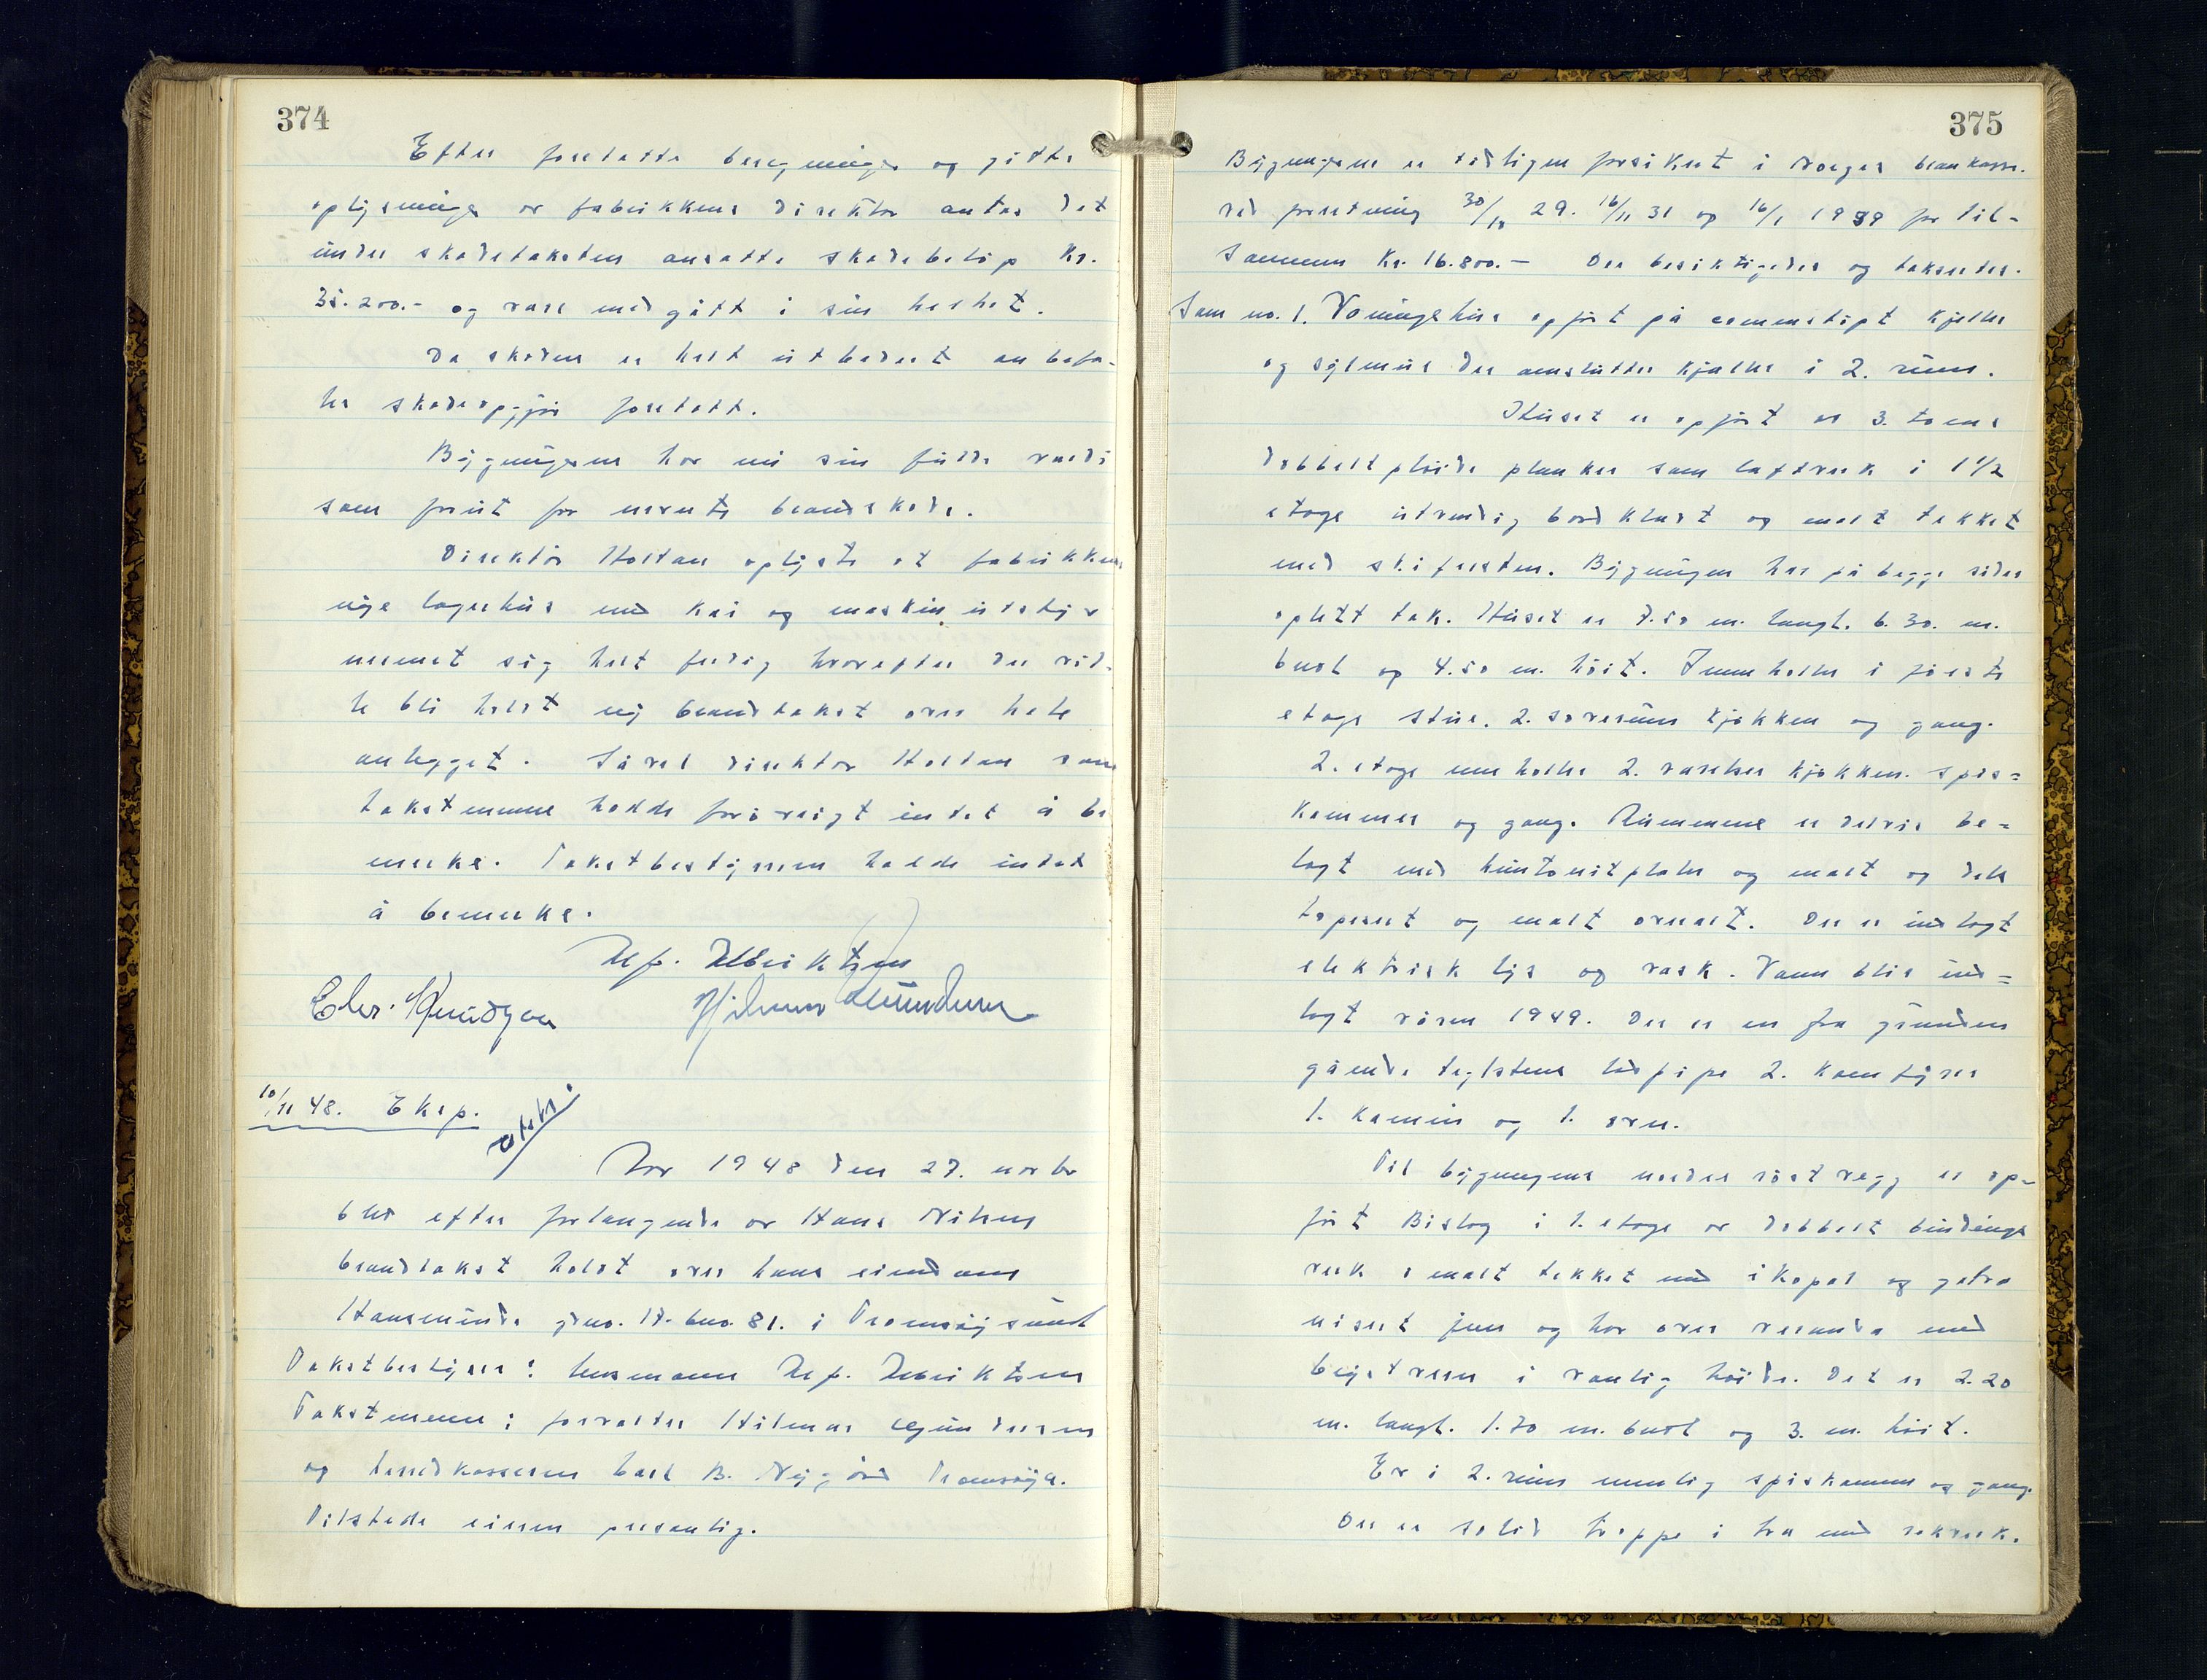 374
Efter foretatte beregninger og gitte
oplysninger av fabrikkens direktør antas det
under skadetaksten ansatte skadebeløp kr.
35.200.- og være medgått i sin helhet.
Da skaden er helt utbedret anbefa-
les skadeopgjør foretatt.
Bygningene har nu sin fulde verdi
som forut for nevnte brandskade.
Direktør Holtan oplyste at fabrikkens
nye lagerhus med kai og maskinutstyr
nermet sig helt ferdig hvorefter der vid-
le bli holdt ny brandtakst over hele
anlegget. Såvel direktør Holtan som
takstmenne hadde forøvrigt intet å be
merke. Takstbestyreren hadde intet
å bemerke.
Alf. Albriktsen
Chr. Knudsen Hjelmar Gundersen
10/11 48. Eksp.
Aar 1948 den 27. novbr
blev efter forlangende av Hans Nilsen
brandtakst holdt over hans eiendom
Hansminde gno. 17. bno. 81. i Tromsøysund
Takstbestyrer: lensmann Alf. Albriktsen
Takstmenn: forvalter Hilmar Gundersen
og herredkasserer Carl B. Nygård Tromsøya.
Tilstede eieren personlig.
375
Bygningene er tidligere forsikret i Norges brankasse.
ved forretning 30/10 29. 16/11 31 og 16/1 1939 for til-
sammen Kr. 16.800.- Der besiktigedes og takseredes.
Som no. 1. Våningshus opført på sementstøpt kjeller
og sylmur der omslutter kjeller i 2. rum.
Huset er opført av 3. toms
dobbeltpløide planker som laftverk i 1 1/2
etage utvendig bordkledt og malt tekket
med skifersten. Bygningen har på begge sider
opløtt tak. Huset er 7.50 m. langt. 6.30. m.
bredt og 4.50 m. høit. Inneholder i første
etage stue. 2. soverum kjøkken og gang.
2. etage inneholder 2. værelser kjøkken. spis=
kammer og gang. Rummene er delvis be=
lagt med huntonitplater og malt og dels
tapeseret og malt overalt. Der er indlagt
elektrisk lys og vask. Vann blir ind=
lagt våren 1949. Der er en fra grunden
gående teglstens luspipe 2. komfyrer
1. kamin og 1. ovn.
Til bygningens nordre røstvegg er op-
ført Bislag i 1. etage av dobbelt bindings
verk omalt tekket med ikopal og galva
nisert jern og har over veranda med
brystvern i vanlig høide. Det er 2.20
m. langt. 1.70 m. bredt og 3. m. høit.
Er i 2. rum nemlig spiskammer og gang.
Der er solid trappe i tre med rekverk.